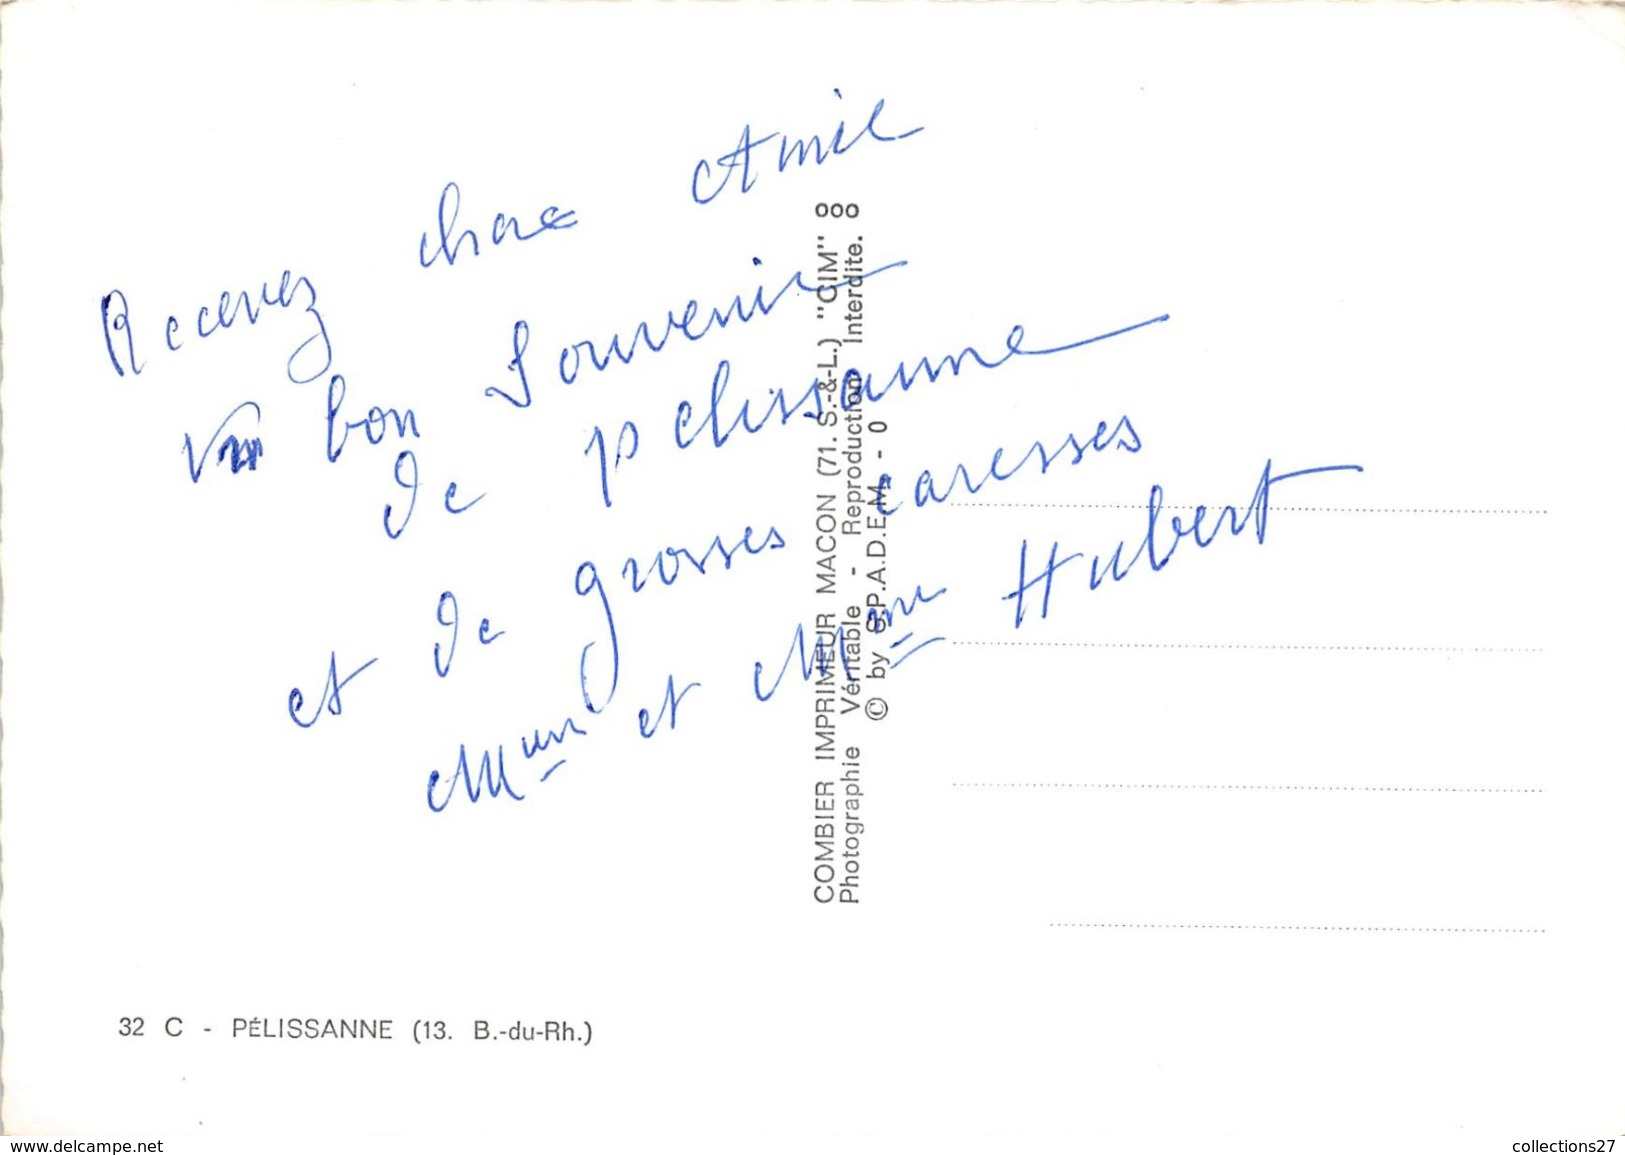 Recevez chere Amie
un bon Souvenir
de pelissanne
et de grosses caresses
et Mme Hubert
COMBIER IMPRIMEUR MACON (71. S.-&-L.) "CIM"
Photographie Véritable - Reproduction Interdite.
© by S.P.A.D.E.M. - 0
32 C - PÉLISSANNE (13. B.-du-Rh.)
www.delcampe.net
collections27